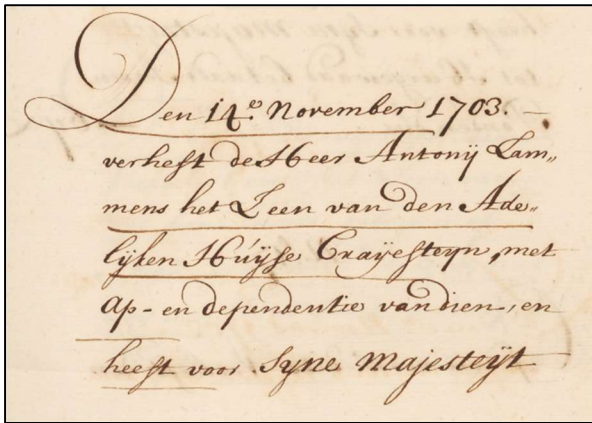 Den 14.º November 1703.
verheft de Heer Antonij Lam„
mens het Leen van den Ade„
lijken Húÿse Craÿesteyn, met
ap- en dependentie van dien, en
heeft voor Syne Majesteÿt